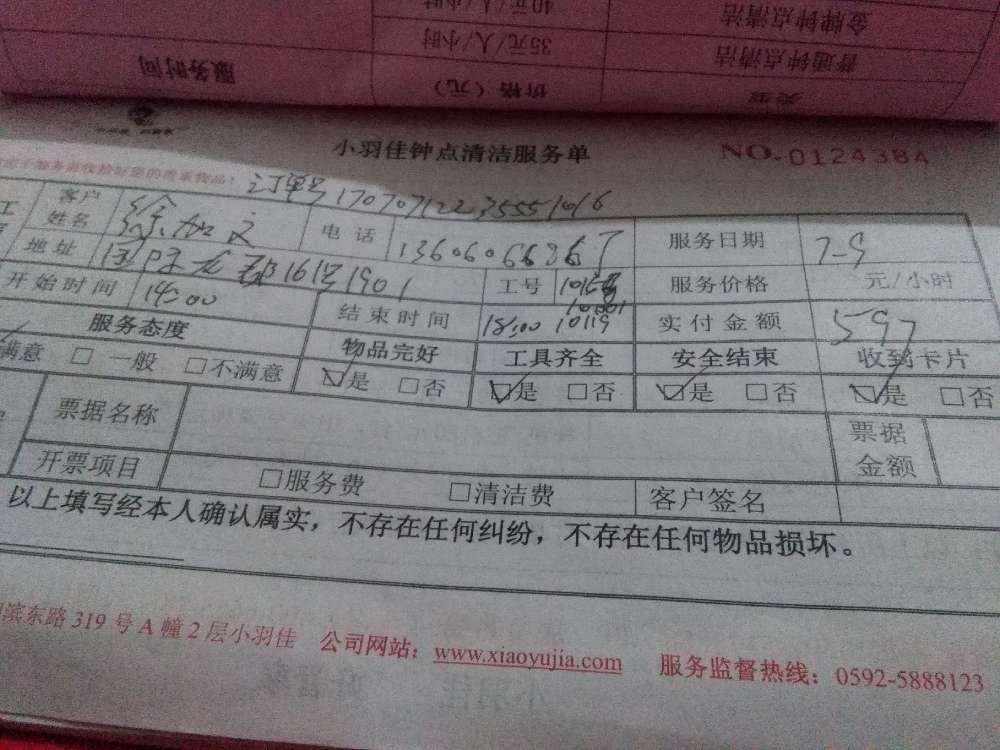 服务时间 价格（元） 类型
35元/人/小时 普通钟点清洁
40元/人/小时 金牌钟点清洁
小羽佳钟点清洁服务单 NO.0124384
订单号 17070712235551016
客户姓名 徐加文 电话 服务日期 7-9
地址 161号1901 工号 服务价格 元/小时
开始时间 14:00 结束时间 18:00 10119 实付金额 597
服务态度 物品完好 工具齐全 安全结束 收到卡片
满意 □一般 □不满意 ☑是 □否 ☑是 □否 ☑是 □否 ☑是 □否
票据名称 票据金额
开票项目 □服务费 □清洁费 客户签名
以上填写经本人确认属实，不存在任何纠纷，不存在任何物品损坏。
滨东路319号A幢2层小羽佳 公司网站：www.xiaoyujia.com 服务监督热线：0592-5888123